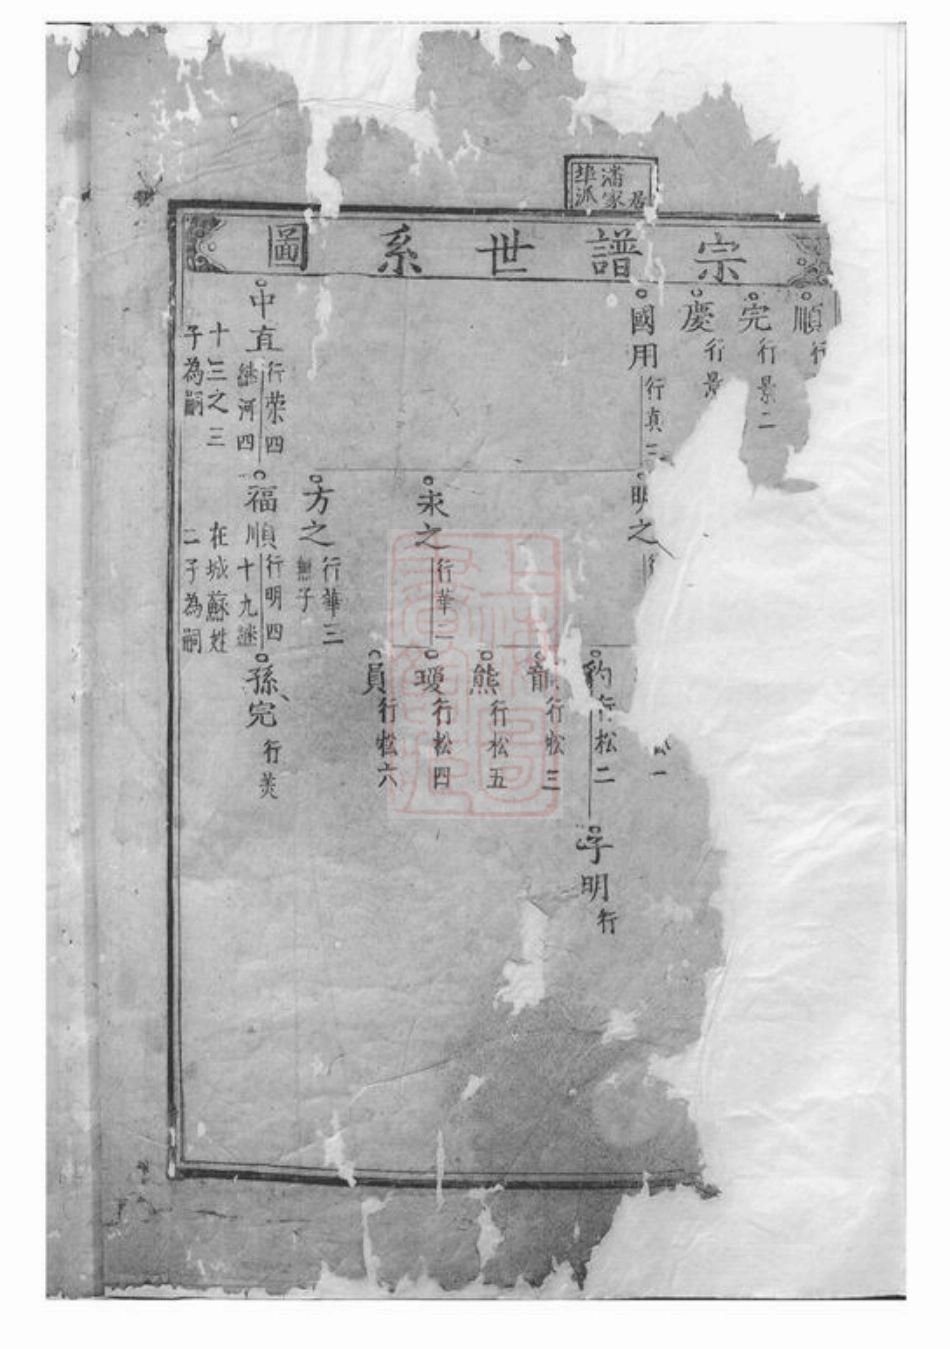 居
潘家
埠派
宗譜世系圖
順 行
完 行景二
慶 行景
國用 行真
明之
豹 行松二
子明 行
行松三
熊 行松五
永之 行華二
瑷 行松四
員 行松六
方之 行華三
無子
中直 行荣四
继河四
十三之三
子為嗣
福順 行明四
川十九继
在城蘇姓
二子為嗣
孫完 行美